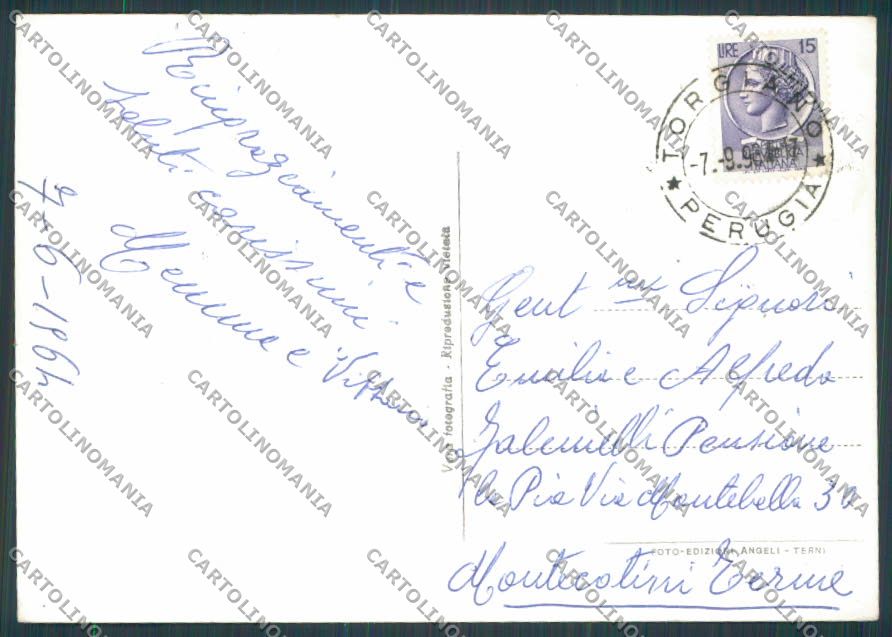 Ringraziamenti e
saluti carissimi
Memme e Vittorio
7-9-1964
Vera fotografia - Riproduzione vietata
LIRE 15
TORGIANO
-7.-9.9
PERUGIA
ITALIANA
Gent mi Signori
Emilia e Alfredo
Pensione
la Pia Via Montebello 30
FOTO-EDIZIONI ANGELI - TERNI
Montecatini Terme
CARTOLINOMANIA